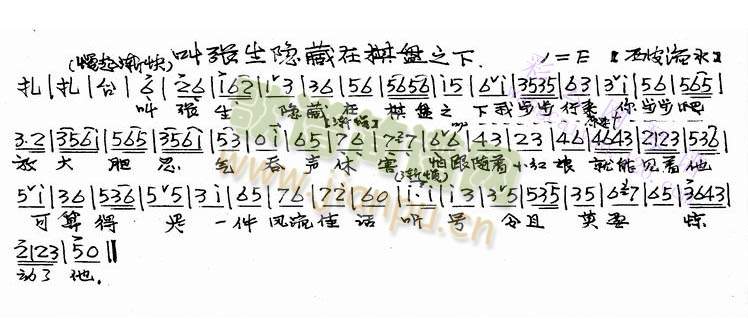 (慢起渐快) 叫张生隐藏在棋盘之下. 1=E 【西皮流水】
扎|扎|台|6|26|162|1ˇ3|36|56|5656|15|6ˇ1|3535|63|3ˇ1|56|565|
叫 张 生 隐藏 在 棋盘 之 下 我 步步 行来 你 步步 吧
3·2|3561|565|3561|53|01|65|76|7727|6ˇ6|43|23|46|4643|2123|536|
放 大 胆 忍 气 吞 声 休 害 怕 跟随着 小红娘 就能 见着 他
5ˇ1|36|536|5ˇ5|31|65|76|72|60|1·1|13|3ˇ5|535|35|627|65|3643|
可 算得 是 一件 风流 佳 话 听 号 令 且 莫要 惊
2123|50‖
动了 他.
www.jianpu.cn